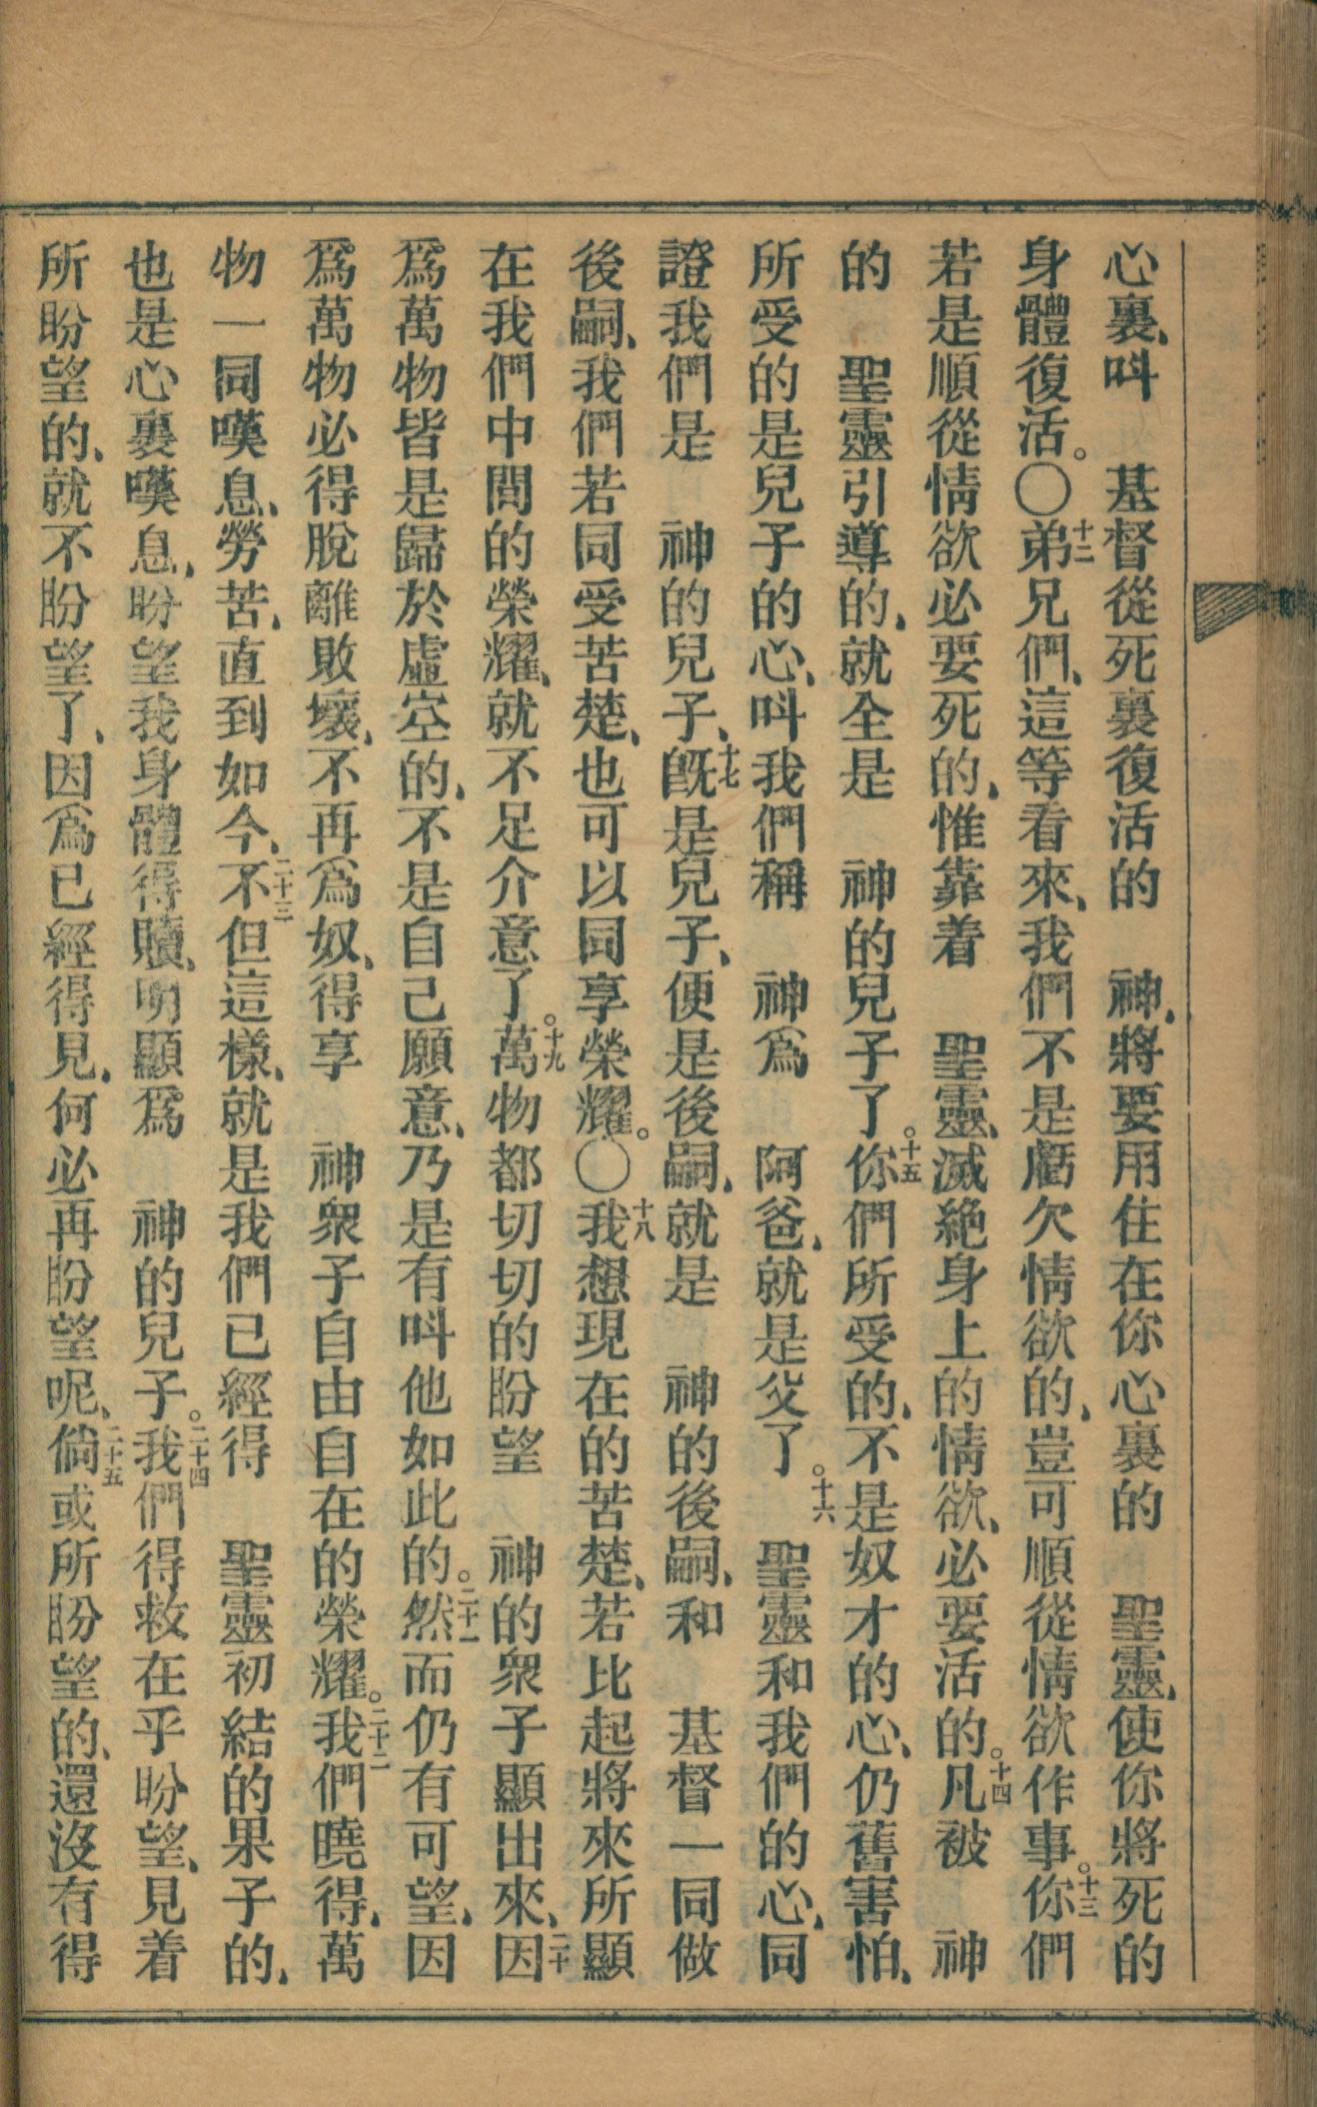 心裏、叫　基督從死裏復活的　神、將要用住在你心裏的　聖靈、使你將死的
身體復活。〇十二弟兄們、這等看來、我們不是虧欠情欲的、豈可順從情欲作事。十三你們
若是順從情欲必要死的、惟靠着　聖靈、滅絕身上的情欲、必要活的。十四凡被　神
的　聖靈引導的、就全是　神的兒子了。十五你們所受的、不是奴才的心、仍舊害怕、
所受的是兒子的心、叫我們稱　神爲　阿爸、就是父了。十六　聖靈和我們的心、同
證我們是　神的兒子、十七旣是兒子、便是後嗣、就是　神的後嗣、和　基督一同做
後嗣、我們若同受苦楚、也可以同享榮耀。〇十八我想現在的苦楚、若比起將來所顯
在我們中間的榮耀、就不足介意了。十九萬物都切切的盼望　神的衆子顯出來、二十因
爲萬物皆是歸於虛空的、不是自己願意、乃是有叫他如此的。二十一然而仍有可望、因
爲萬物必得脫離敗壞、不再爲奴、得享　神衆子自由自在的榮耀。二十二我們曉得、萬
物一同嘆息、勞苦、直到如今、二十三不但這樣、就是我們已經得　聖靈初結的果子的、
也是心裏嘆息、盼望我身體得贖、明顯爲　神的兒子。二十四我們得救在乎盼望、見着
所盼望的、就不盼望了、因爲已經得見、何必再盼望呢、二十五倘或所盼望的、還沒有得